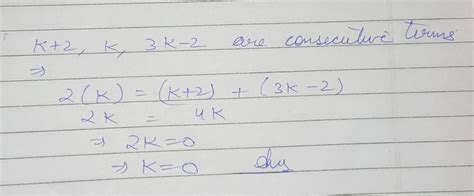 k+2, k, 3k-2 are consecutive terms
⇒
2(k) = (k+2) + (3k-2)
2k = 4k
⇒ 2k=0
⇒ k=0